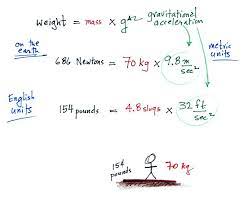 weight = mass × g*² gravitational acceleration
on the earth
metric units
686 Newtons = 70 kg × 9.8 m/sec²
English units
154 pounds = 4.8 slugs × 32 ft/sec²
154 pounds
70 kg